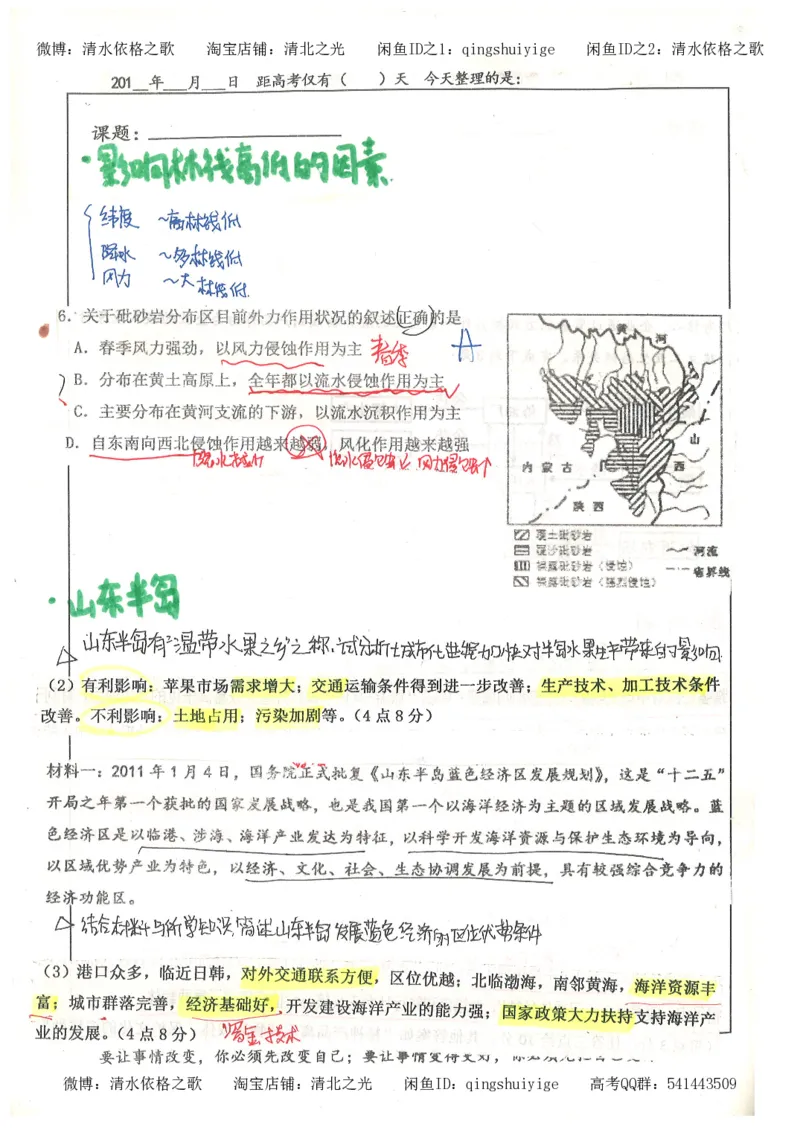 微博：清水依格之歌 淘宝店铺：清北之光 闲鱼ID之1：qingshuiyige 闲鱼ID之2：清水依格之歌
201__年___月___日 距高考仅有（ ）天 今天整理的是：
课题：
·影响林线高低的因素
纬度 ~高林线低
降水 ~多林线低
风力 ~大林线低
6．关于砒砂岩分布区目前外力作用状况的叙述正确的是
A．春季风力强劲，以风力侵蚀作用为主 春季 A
B．分布在黄土高原上，全年都以流水侵蚀作用为主
C．主要分布在黄河支流的下游，以流水沉积作用为主
D．自东南向西北侵蚀作用越来越弱，风化作用越来越强
黄 河
山
西
内 蒙 古
陕 西
覆土砒砂岩
覆沙砒砂岩
裸露砒砂岩（侵蚀）
裸露砒砂岩（强烈侵蚀）
河流
省界线
·山东半岛
山东半岛有"温带水果之乡"之称，试分析城市化进程加快对半岛水果生产带来的影响
(2）有利影响：苹果市场需求增大；交通运输条件得到进一步改善；生产技术、加工技术条件
改善。不利影响：土地占用；污染加剧等。（4点8分）
材料一：2011年1月4日，国务院正式批复《山东半岛蓝色经济区发展规划》，这是“十二五”
开局之年第一个获批的国家发展战略，也是我国第一个以海洋经济为主题的区域发展战略。蓝
色经济区是以临港、涉海、海洋产业发达为特征，以科学开发海洋资源与保护生态环境为导向，
以区域优势产业为特色，以经济、文化、社会、生态协调发展为前提，具有较强综合竞争力的
经济功能区。
结合材料与所学知识，简述山东半岛发展蓝色经济的区位优势条件
（3）港口众多，临近日韩，对外交通联系方便，区位优越；北临渤海，南邻黄海，海洋资源丰
富；城市群落完善，经济基础好，开发建设海洋产业的能力强；国家政策大力扶持支持海洋产
业的发展。（4点8分） 资金 技术
要让事情改变，你必须先改变自己；要让事情变得更好，
微博：清水依格之歌 淘宝店铺：清北之光 闲鱼ID：qingshuiyige 高考QQ群：541443509